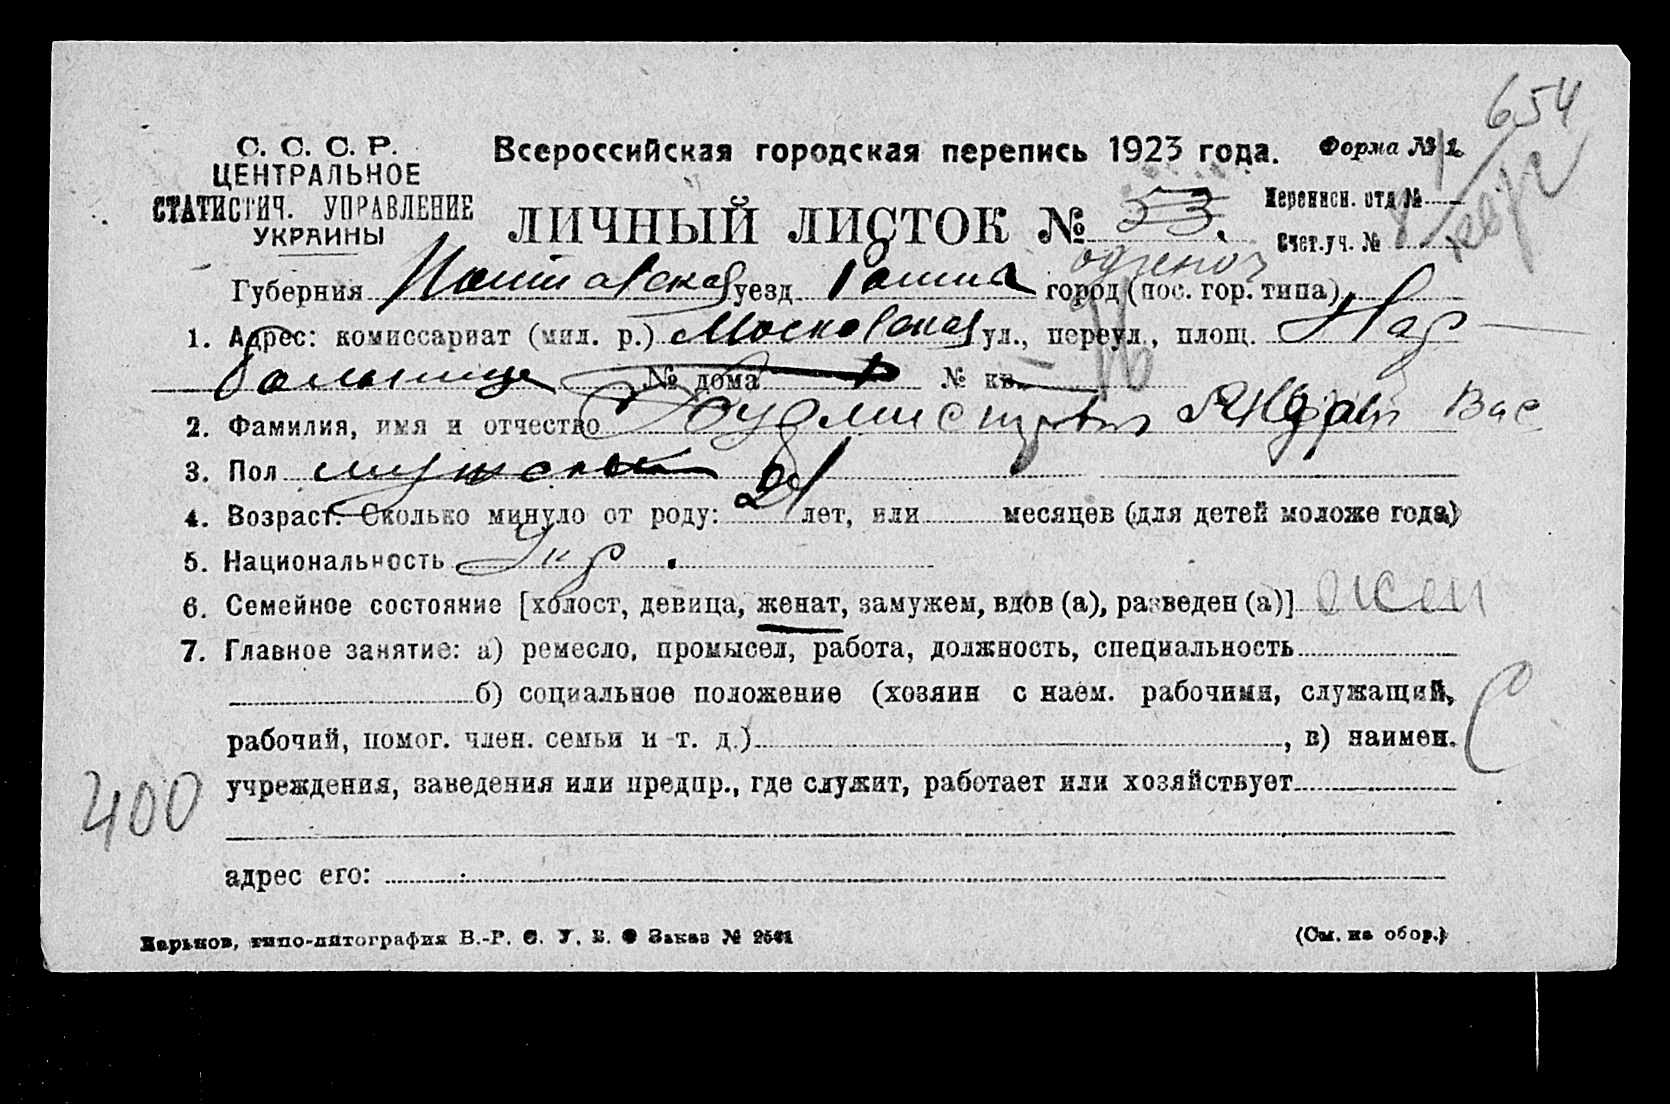 654
С. С. С. Р.
ЦЕНТРАЛЬНОЕ
СТАТИСТИЧ. УПРАВЛЕНИЕ
УКРАИНЫ
Всероссийская городская перепись 1923 года. Форма № 1.
ЛИЧНЫЙ ЛИСТОК № 53.
Переписн. отд №
Счет.уч. №
Губерния Полтавская уезд Ромны город (пос. гор. типа)
1. Адрес: комиссариат (мил. р.) Московская ул., переул., площ. Нар
больнице № дома № кв.
2. Фамилия, имя и отчество Вас
3. Пол мужской
4. Возраст. Сколько минуло от роду: лет, или месяцев (для детей моложе года)
5. Национальность Укр.
6. Семейное состояние [холост, девица, женат, замужем, вдов (а), разведен (а)] жен
7. Главное занятие: а) ремесло, промысел, работа, должность, специальность
б) социальное положение (хозяин с наем. рабочими, служащий, С
рабочий, помог. член. семьи и т. д.) , в) наимен.
400 учреждения, заведения или предпр., где служит, работает или хозяйствует
адрес его:
Харьков, типо-литография В.-Р. С. У. В. Заказ № (См. на обор.)